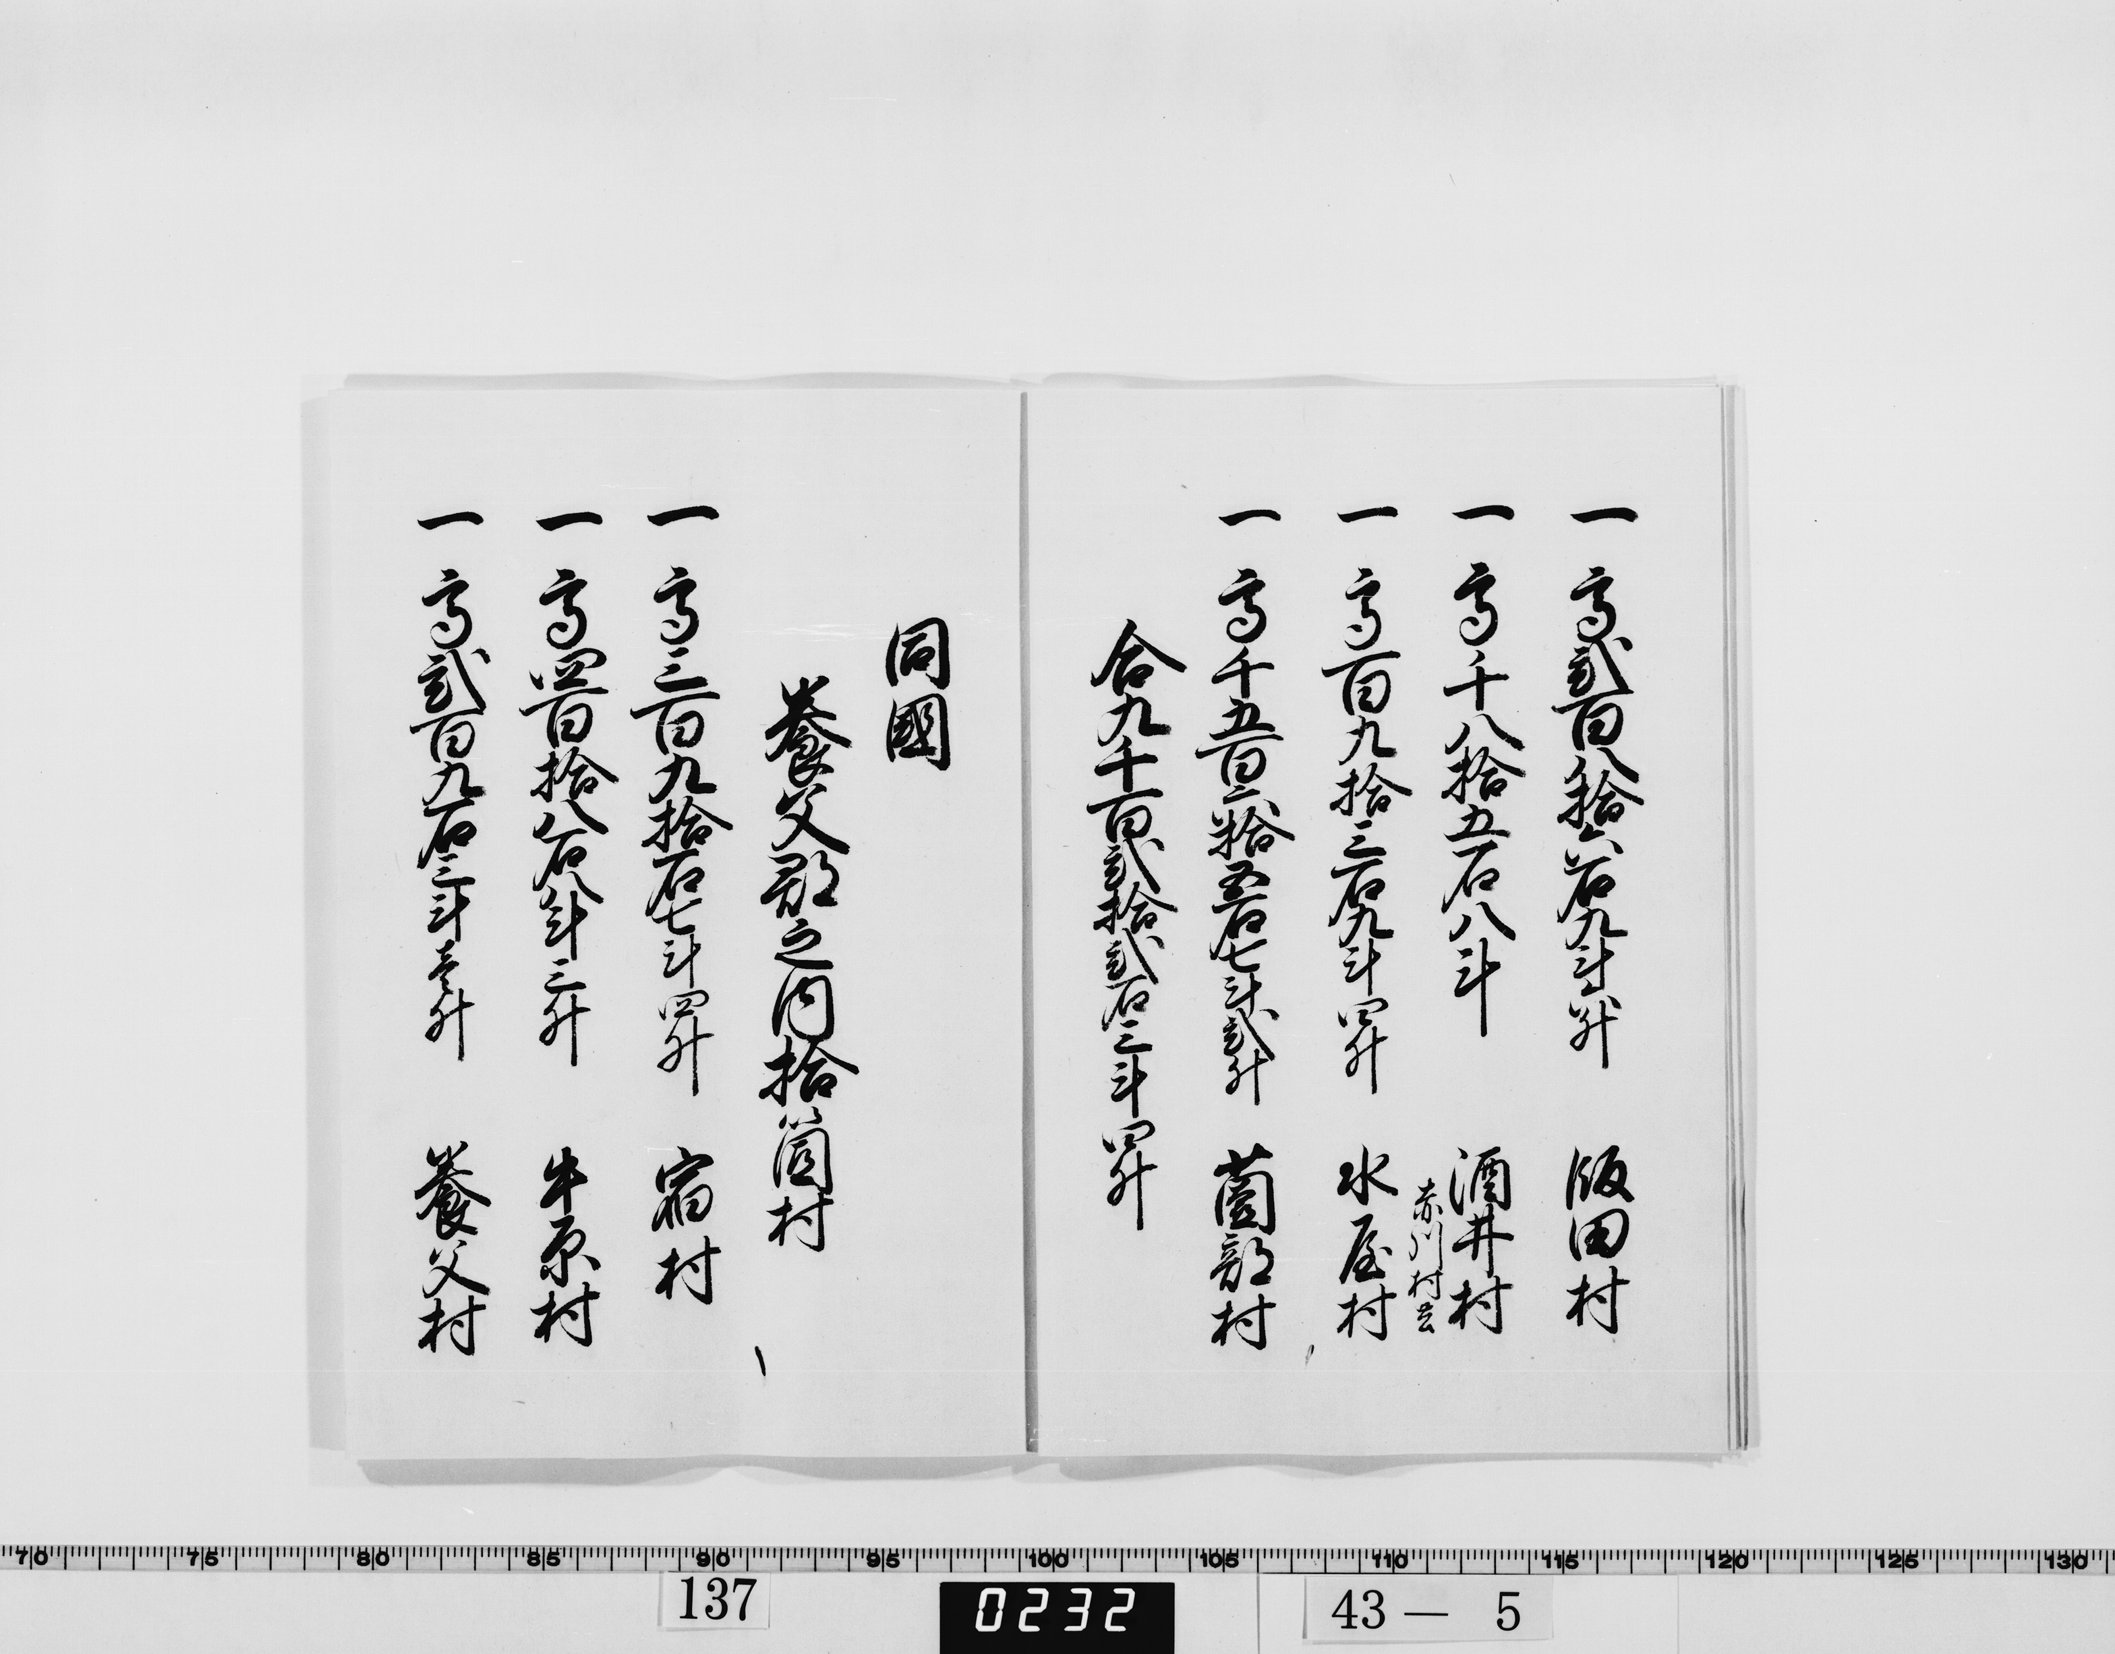 一高弐百八拾六石九斗六升 飯田村
一高千八拾五石八斗 酒井村
赤川村共
一高百九拾三石九斗四升 水屋村
一高千五百六拾五石七斗弐升 薗部村
合九千百弐拾弐石三斗四升
同國
養父郡之内拾箇村
一高三百九拾石七斗四升 宿村
一高四百拾八石八斗三升 牛原村
一高弐百九石三斗壱升 養父村
70 75 80 85 90 95 100 105 110 115 120 125 130
137
0232
43－5